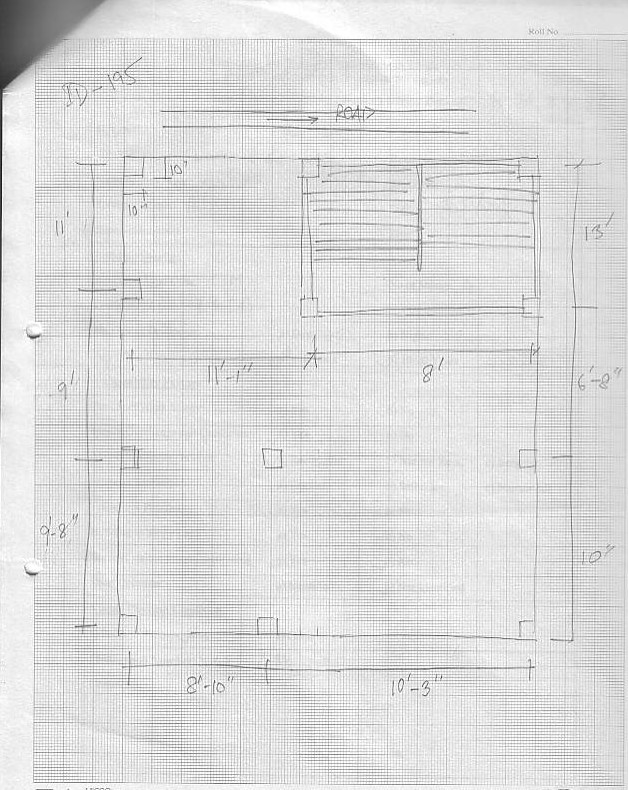 Roll No
ID-195
ROAD
10"
10"
11'
13'
11'-1"
8'
9'
6'-8"
9'-8"
10"
8'-10"
10'-3"